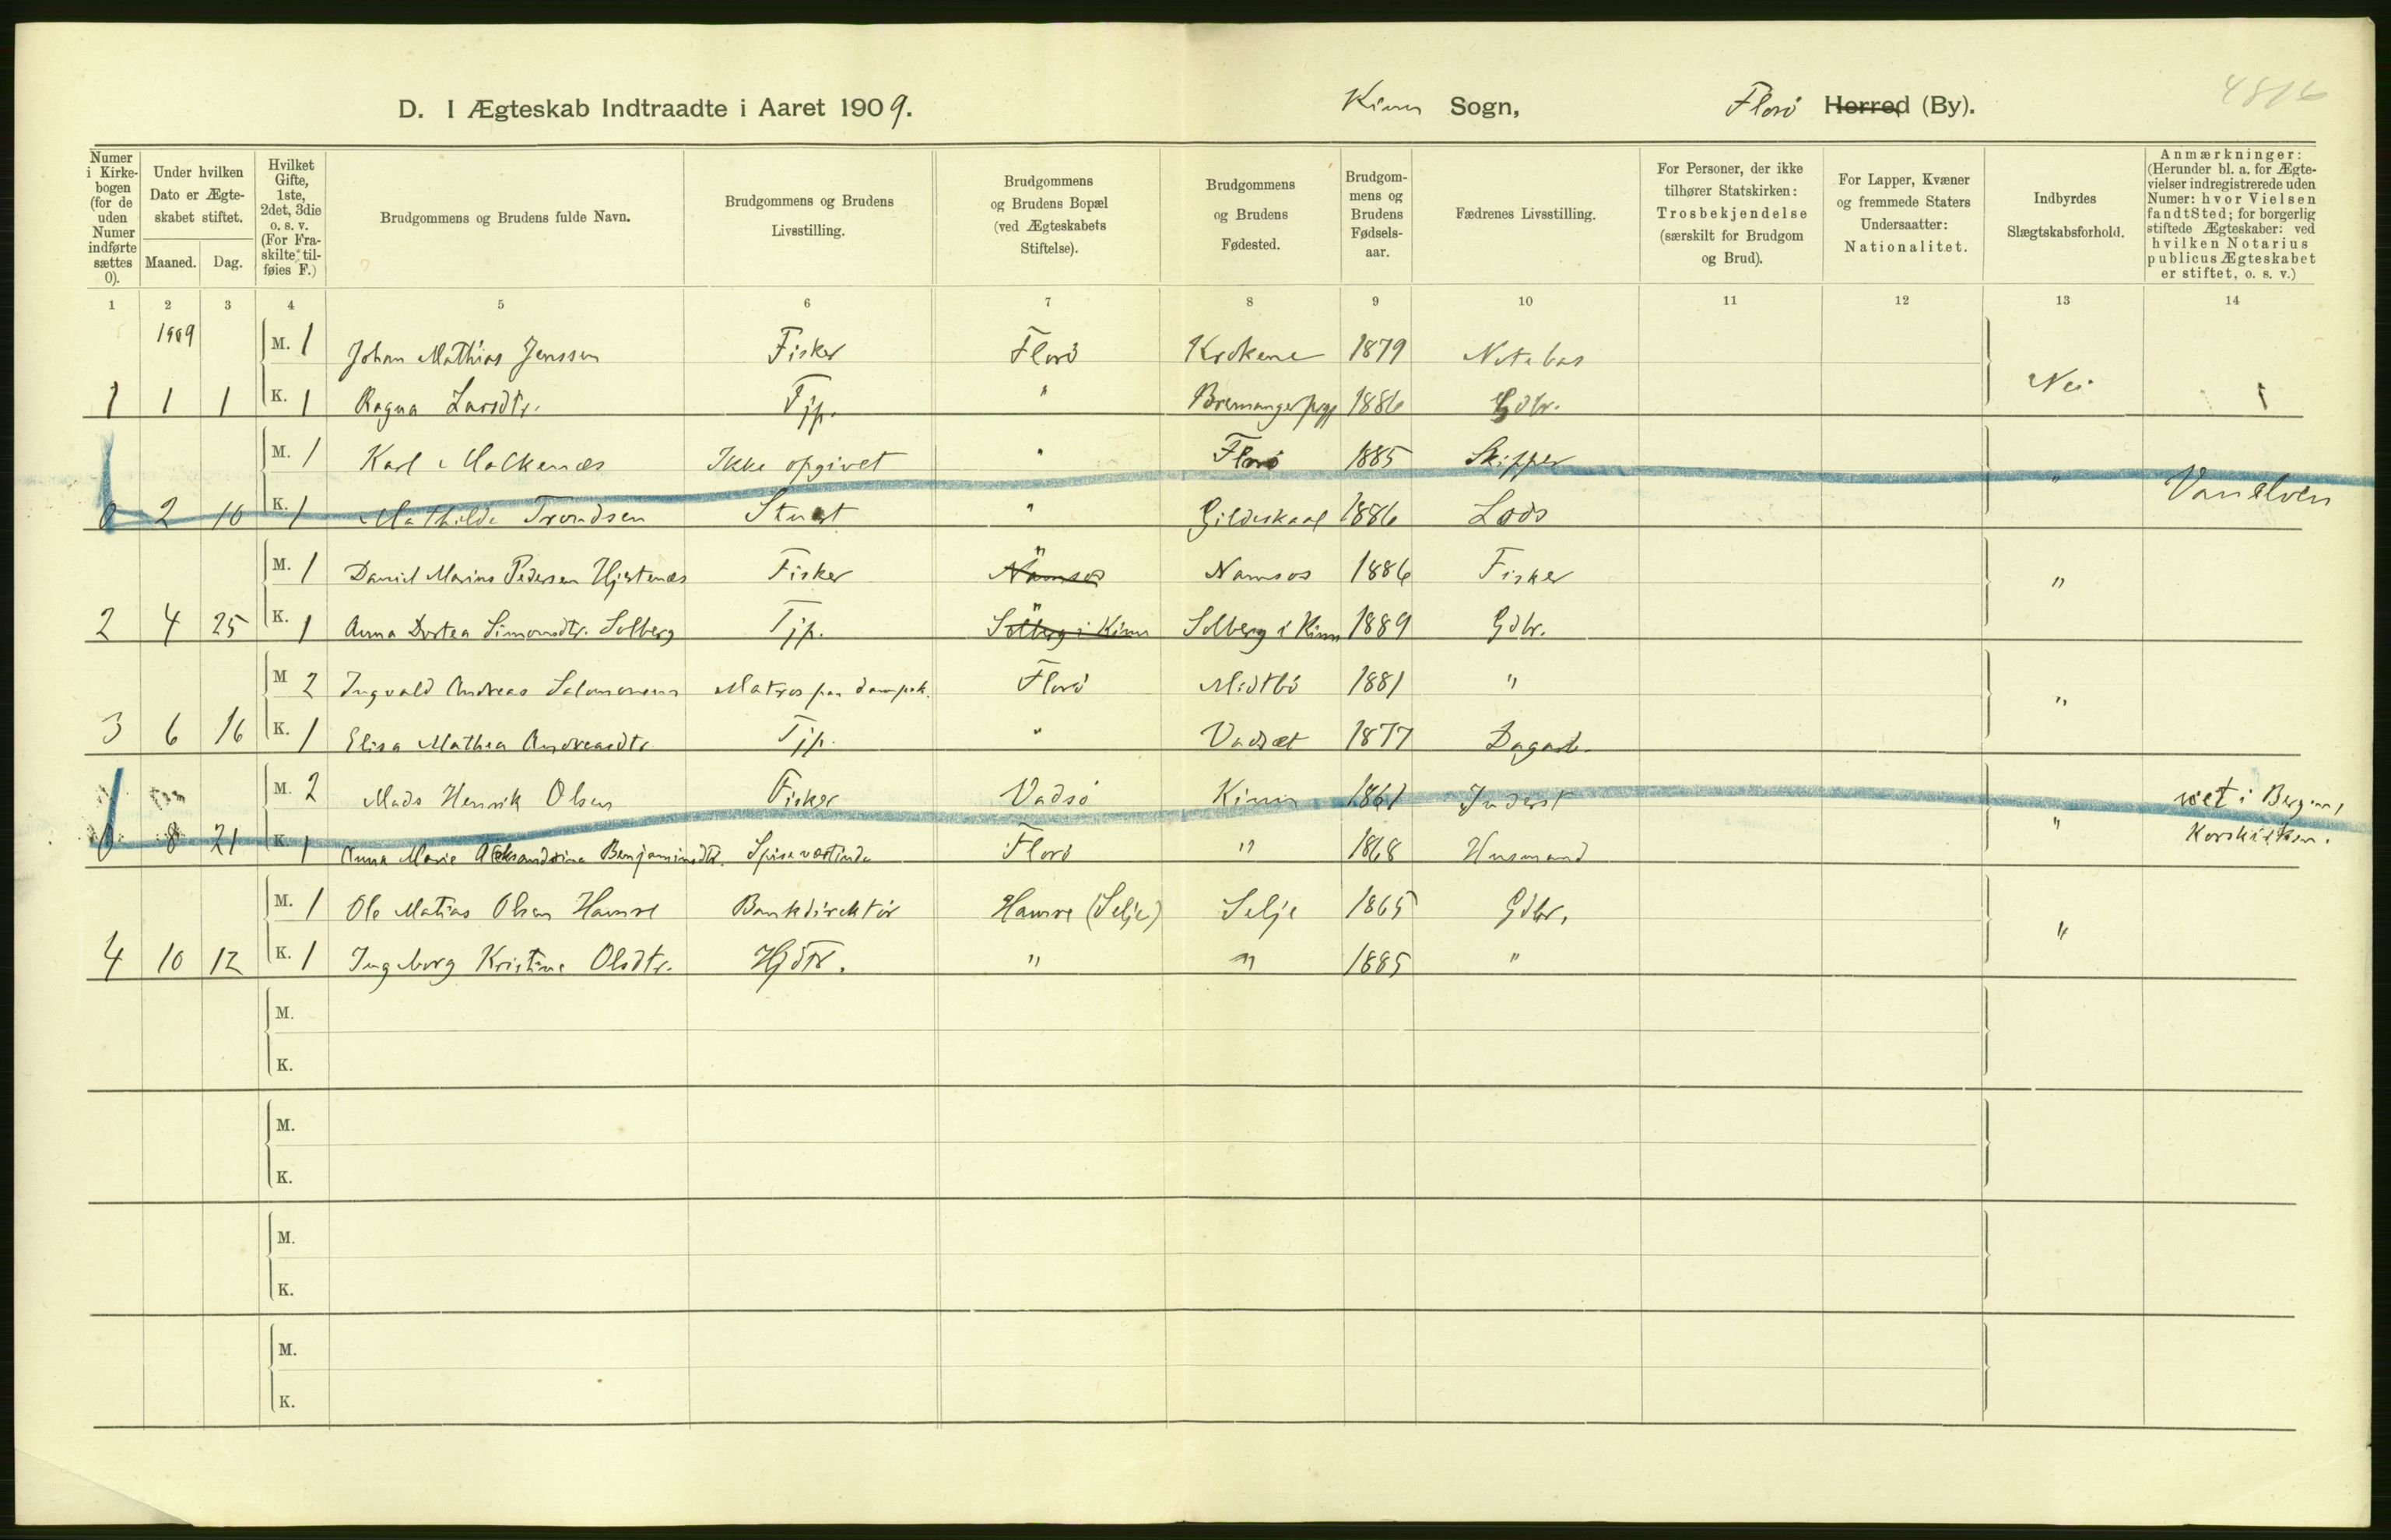 4816
D. I Ægteskab Indtraadte i Aaret 1909. Kinn Sogn, Florö Herred (By).
Numer i Kirkebogen (for de uden Numer indførte sættes 0).
Under hvilken Dato er Ægteskabet stiftet.
Maaned. Dag.
Hvilket Gifte, 1ste, 2det, 3die o. s. v. (For Fraskilte tilføies F.)
Brudgommens og Brudens fulde Navn.
Brudgommens og Brudens Livsstilling.
Brudgommens og Brudens Bopæl (ved Ægteskabets Stiftelse).
Brudgommens og Brudens Fødested.
Brudgommens og Brudens Fødselsaar.
Fædrenes Livsstilling.
For Personer, der ikke tilhører Statskirken: Trosbekjendelse (særskilt for Brudgom og Brud).
For Lapper, Kvæner og fremmede Staters Undersaatter: Nationalitet.
Indbyrdes Slægtskabsforhold.
Anmærkninger: (Herunder bl. a. for Ægtevielser indregistrerede uden Numer: hvor Vielsen fandt Sted; for borgerlig stiftede Ægteskaber: ved hvilken Notarius publicus Ægteskabet er stiftet, o. s. v.)
1 2 3 4 5 6 7 8 9 10 11 12 13 14
1909 M. 1 Johan Mathias Jenssen Fisker Florö Krokene 1879 Notebas
1 1 1 K. 1 Ragna Larsdtr. Tjp. " Bremanger prgj 1886 Gdbr. Nei 1
M. 1 Karl Ikke opgivet " Florö 1885 Skipper
0 2 10 K. 1 Mathilde Trondsen Stuert " Gildeskaal 1886 Lods " Vanelven
M. 1 Daniel Marius Pedersen Hjertenæs Fisker Namsos Namsos 1886 Fisker
2 4 25 K. 1 Anna Dortea Simonsdtr. Solberg Tjp. Solberg i Kinn Solberg i Kinn 1889 Gdbr. "
M 2 Ingvald Andreas Salomonsen Matros paa dampsk. Florö Midtbö 1881 "
3 6 16 K. 1 Elisa Mathea Andreasdtr. Tjp. " Vadset 1877 Dagarb. "
M. 2 Mads Henrik Olsen Fisker Vadsö Kinn 1861 Inderst viet i Bergen,
0 8 21 K 1 Anna Marie Aleksandrine Benjaminsdtr. Spiseværtinde Florö " 1868 Husmand " Korskirken.
M. 1 Ole Matias Olsen Hamre Bankdirektör Hamre (Selje) Selje 1865 Gdbr.
4 10 12 K. 1 Ingeborg Kristine Olsdtr. Hjdtr. " " 1885 " "
M.
K.
M.
K.
M.
K.
M.
K.